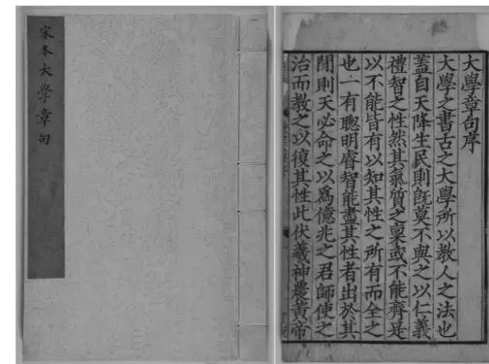 家本大學章句
大學章句序
大學之書古之大學所以教人之法也
蓋自天降生民則既莫不與之以仁義
禮智之性然其氣質之稟或不能齊是
以不能皆有以知其性之所有而全之
也一有聰明睿智能盡其性者出於其
閒則天必命之以爲億兆之君師使之
治而教之以復其性此伏羲神農黃帝